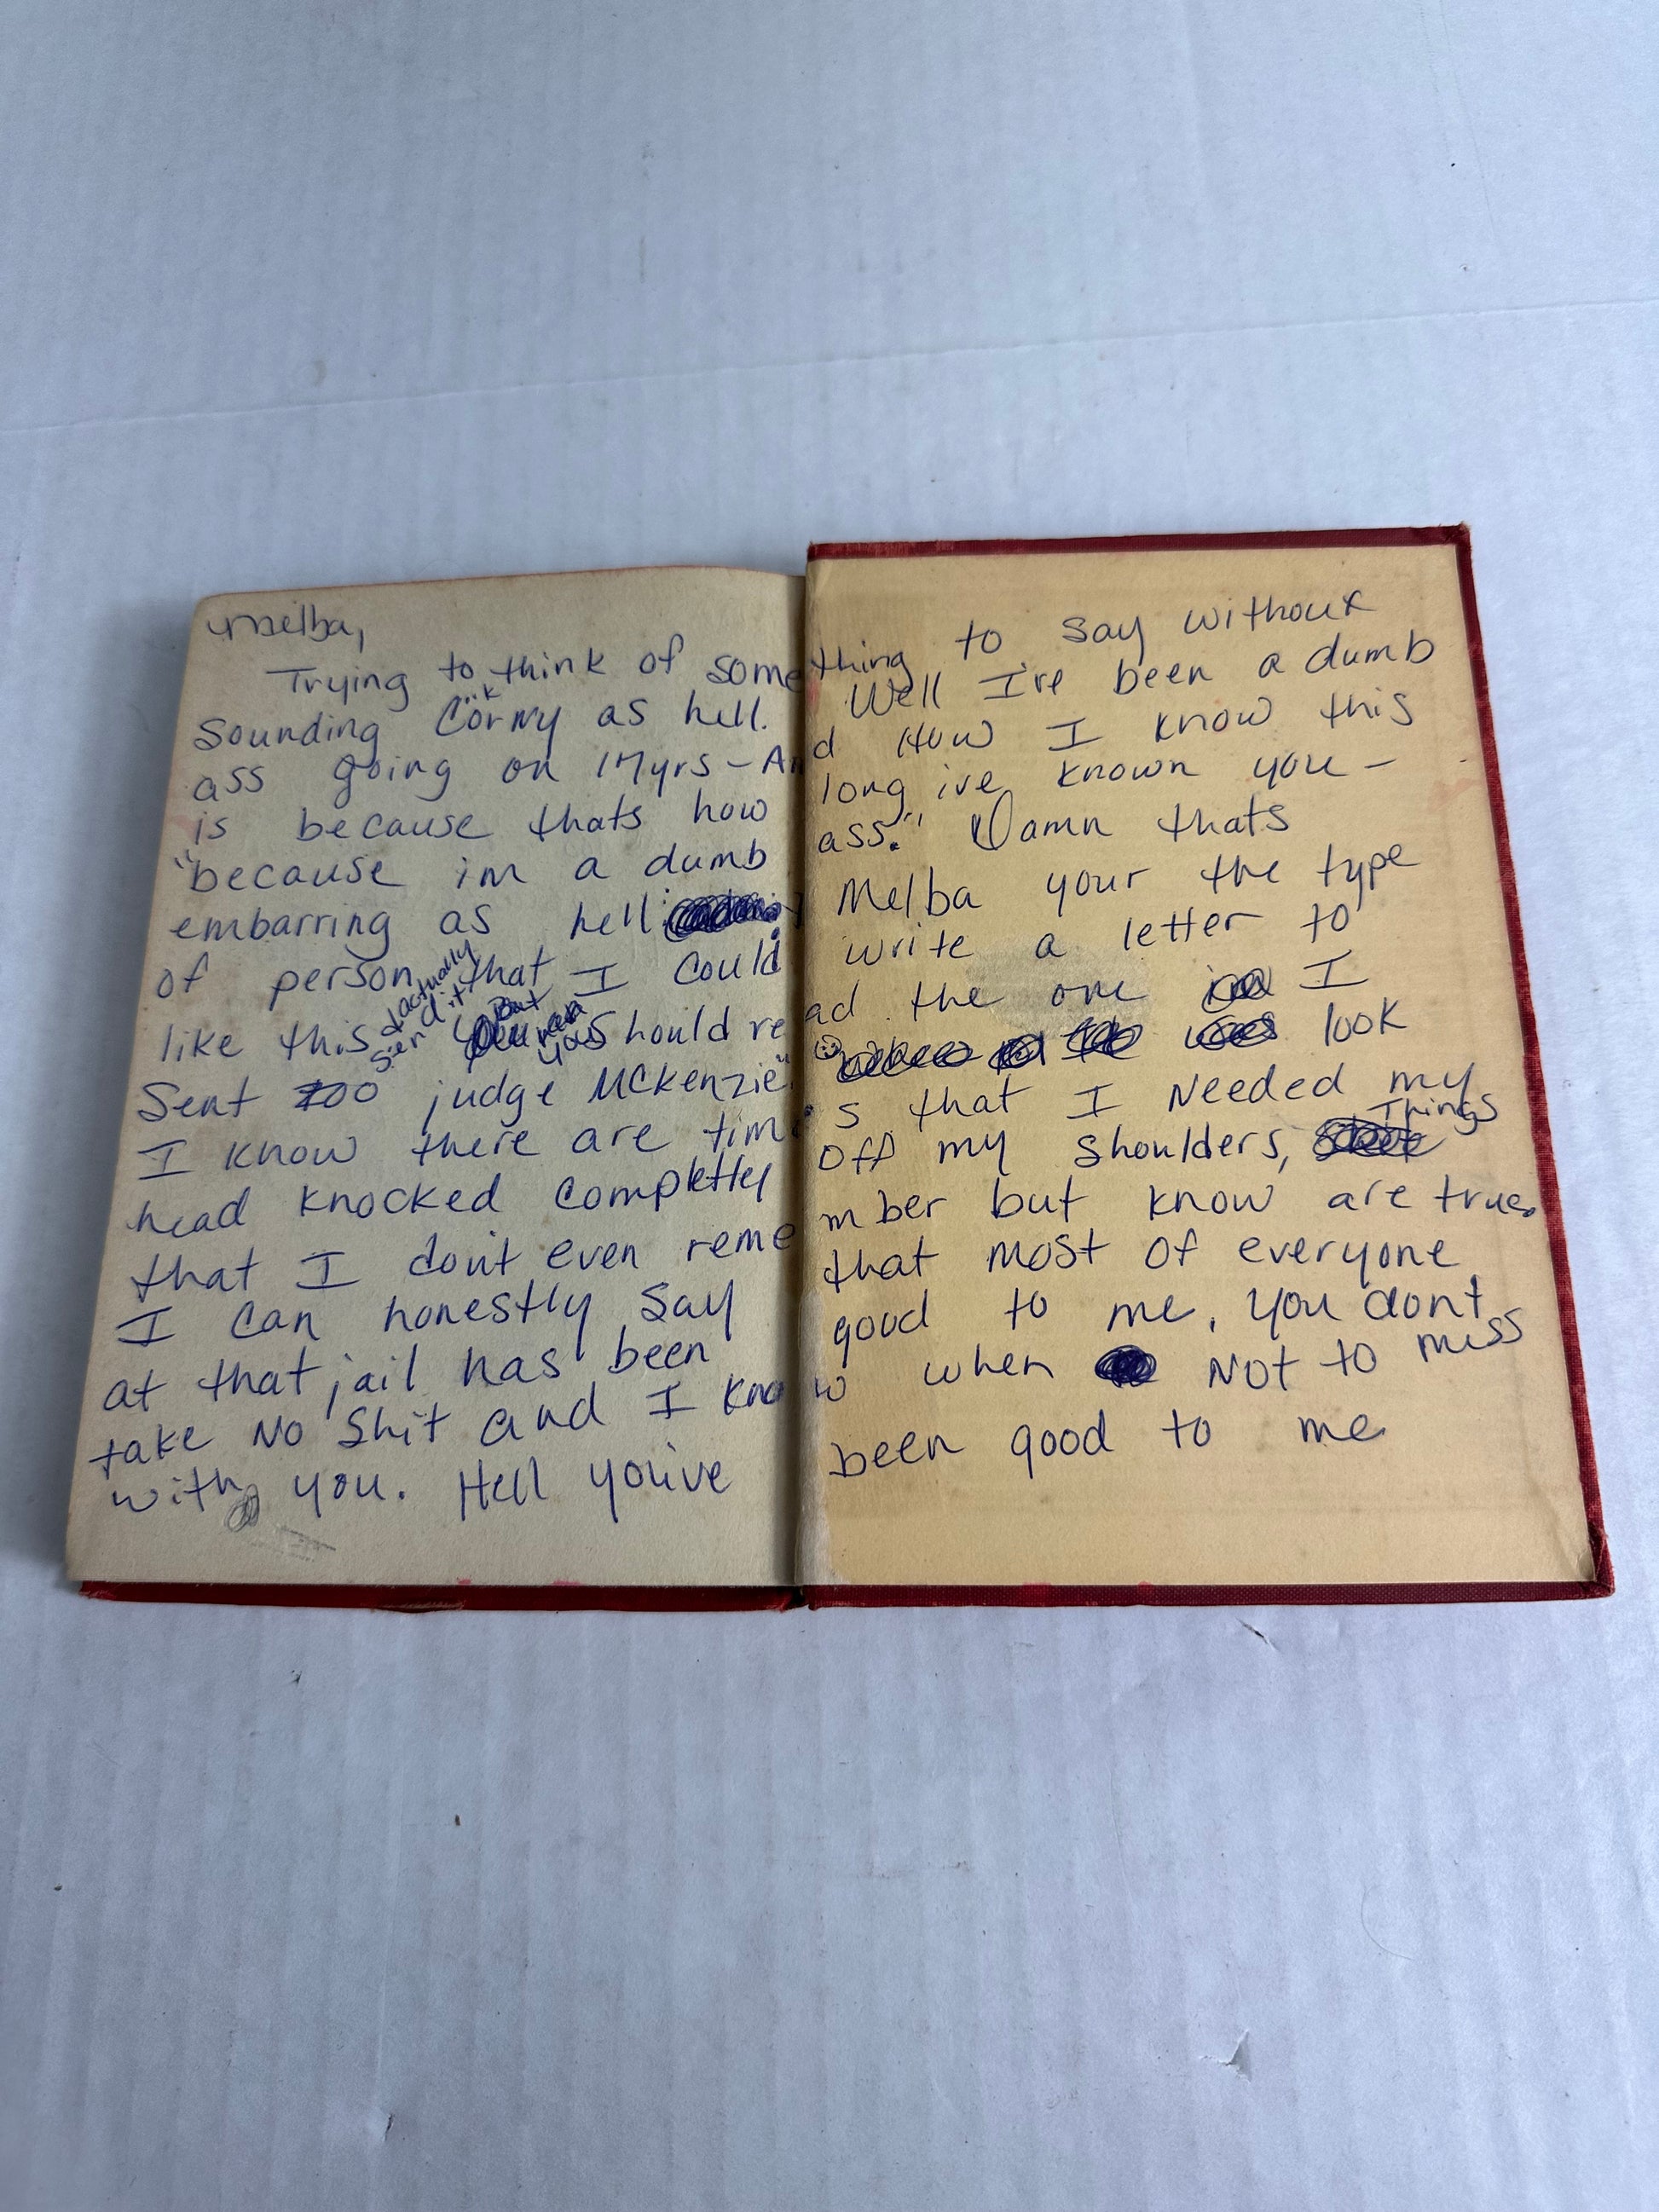 Melba,
Trying to think of something to say without
sounding "Corny as hell. Well I've been a dumb
ass going on 17yrs - And How I know this
is because thats how long ive known you -
"because im a dumb ass." Damn thats
embarring as hell Melba your the type
of person that I could write a letter to
like this & actually send it But you should read the one I
Sent judge McKenzie" look
I know there are times that I Needed my
head knocked completly off my shoulders, Things
that I don't even remember but know are true.
I can honestly say that most of everyone
at that jail has been good to me. You dont
take No Shit and I know when Not to mess
with you. Hell you've been good to me